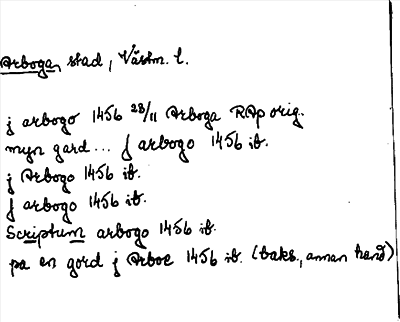 Arboga, stad, Västm. l.
j arbogo 1456 28/11 Arboga RAp orig.
myn gard... J arbogo 1456 ib.
j Arbogo 1456 ib.
J arbogo 1456 ib.
Scriptum arbogo 1456 ib.
pa en gord j Arboe 1456 ib. (baks., annan hand)